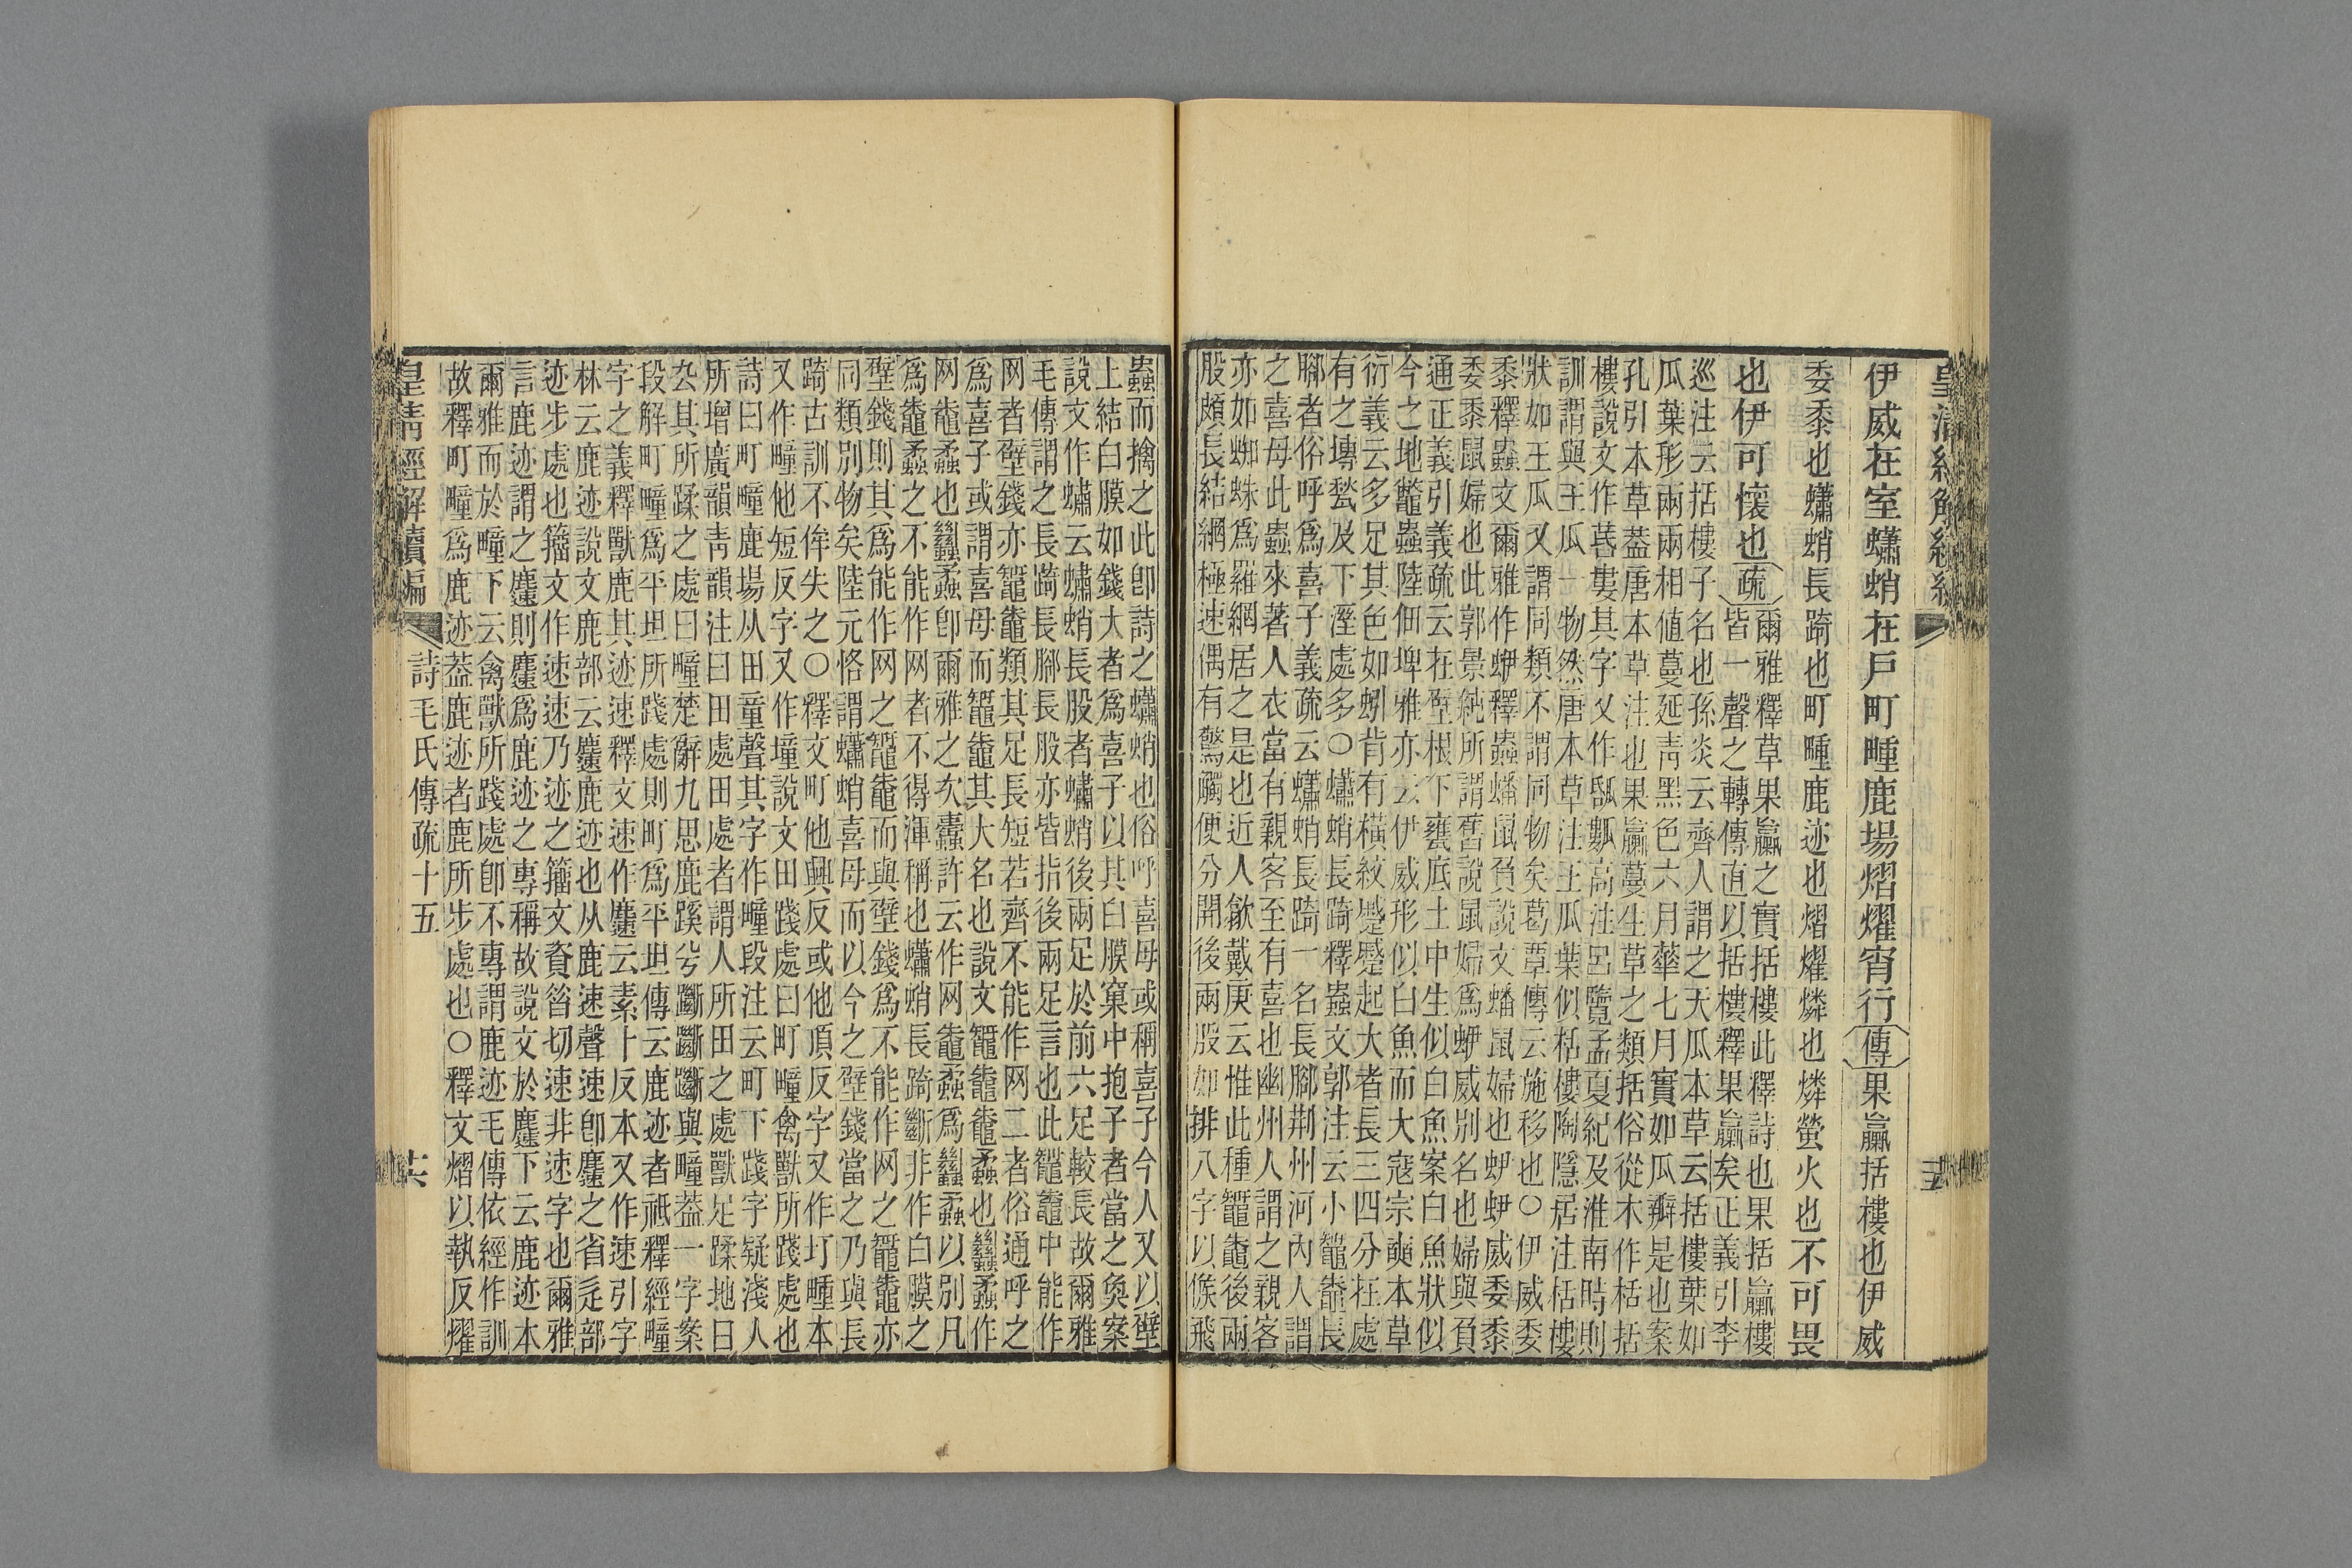 皇清經解續編
伊威在室蠨蛸在戶町畽鹿場熠燿宵行傳果臝括樓也伊威
委黍也蠨蛸長踦也町畽鹿迹也熠燿燐也燐螢火也不可畏
也伊可懷也疏
爾雅釋草果臝之實括樓此釋詩也果括臝樓
皆一聲之轉傳直以括樓釋果臝矣正義引李
巡注云括樓子名也孫炎云齊人謂之天瓜本草云括樓葉如
瓜葉形兩兩相値蔓延靑黑色六月華七月實如瓜瓣是也案
孔引本草葢唐本草注也果臝蔓生草之類括俗從木作栝括
樓說文作䒷蔞其字又作㼖高注呂覽孟夏紀及淮南時則
訓謂與王瓜一物然唐本草注王瓜葉似栝樓陶隱居注栝樓
狀如王瓜又謂同類不謂同物矣葛覃傳云施移也○伊威委
黍釋蟲文爾雅作蛜釋蟲蟠鼠負說文蟠鼠婦也蛜蛜威委黍
委黍鼠婦也此郭景純所謂舊說鼠婦爲蛜威別名也婦與負
通正義引義疏云在壁根下甕底土中生似白魚案白魚狀似
今之地鼈蟲陸佃埤雅亦云伊威形似白魚而大寇宗奭本草
衍義云多足其色如蚓背有橫紋蹙蹙起大者長三四分在處
有之塼甃及下溼處多○蠨蛸長踦釋蟲文郭注云小鼅鼄長
腳者俗呼爲喜子義疏云蠨蛸長踦一名長腳荆州河內人謂
之喜母此蟲來著人衣當有親客至有喜也幽州人謂之親客
亦如蜘蛛爲羅網居之是也近人歙戴庚云惟此種鼅鼄後兩
股頗長結網極速偶有驚觸便分開後兩股如排八字以候飛
蟲而擒之此卽詩之蠨蛸也俗呼喜母或稱喜子今人又以壁
上結白膜如錢大者爲喜子以其白膜窠中抱子者當之奐案
說文作蟰云蟰蛸長股者蟰蛸後兩足於前六足較長故爾雅
毛傳謂之長踦長腳長股亦皆指後兩足言也此鼅鼄中能作
网者壁錢亦鼅鼄類其足長短若齊不能作网二者俗通呼之
爲喜子或謂喜母而鼅鼄其大名也說文鼅鼅鼄蟊也蠿蟊作
网鼄蟊也蠿蟊卽爾雅之次蟗許云作网鼄蟊爲蠿蟊以別凡
爲鼄蟊之不能作网者不得渾稱也蠨蛸長踦斷非作白膜之
壁錢則其爲能作网之鼅鼄而與壁錢爲不能作网之鼅鼄亦
同類別物矣陸元恪謂蠨蛸喜母而以今之壁錢當之乃與長
踦古訓不侔失之○釋文町他興反或他頂反字又作圢畽本
又作疃他短反字又作墥說文田踐處曰町疃禽獸所踐處也
詩曰町疃鹿場从田童聲其字作疃段注云町下踐字疑淺人
所增廣韻靑韻注曰田處田處者謂人所田之處獸足蹂地曰
厹其所蹂之處曰疃楚辭九思鹿蹊兮𨇨𨇨與疃葢一字案
段解町疃爲平坦所踐處則町爲平坦傳云鹿迹者祇釋經疃
字之義釋獸鹿其迹速釋文速作𪋝云素卜反本又作速引字
林云鹿迹說文鹿部云𪋝鹿迹也从鹿速聲速卽𪋝之省辵部
迹步處也籀文作速速乃迹之籀文資昔切速非速字也爾雅
言鹿迹謂之𪋝則𪋝爲鹿迹之專稱故說文於𪋝下云鹿迹本
爾雅而於疃下云禽獸所踐處卽不專謂鹿迹毛傳依經作訓
故釋町疃爲鹿迹葢鹿迹者鹿所步處也○釋文熠以執反燿
皇淸經解續編
詩毛氏傳疏十五